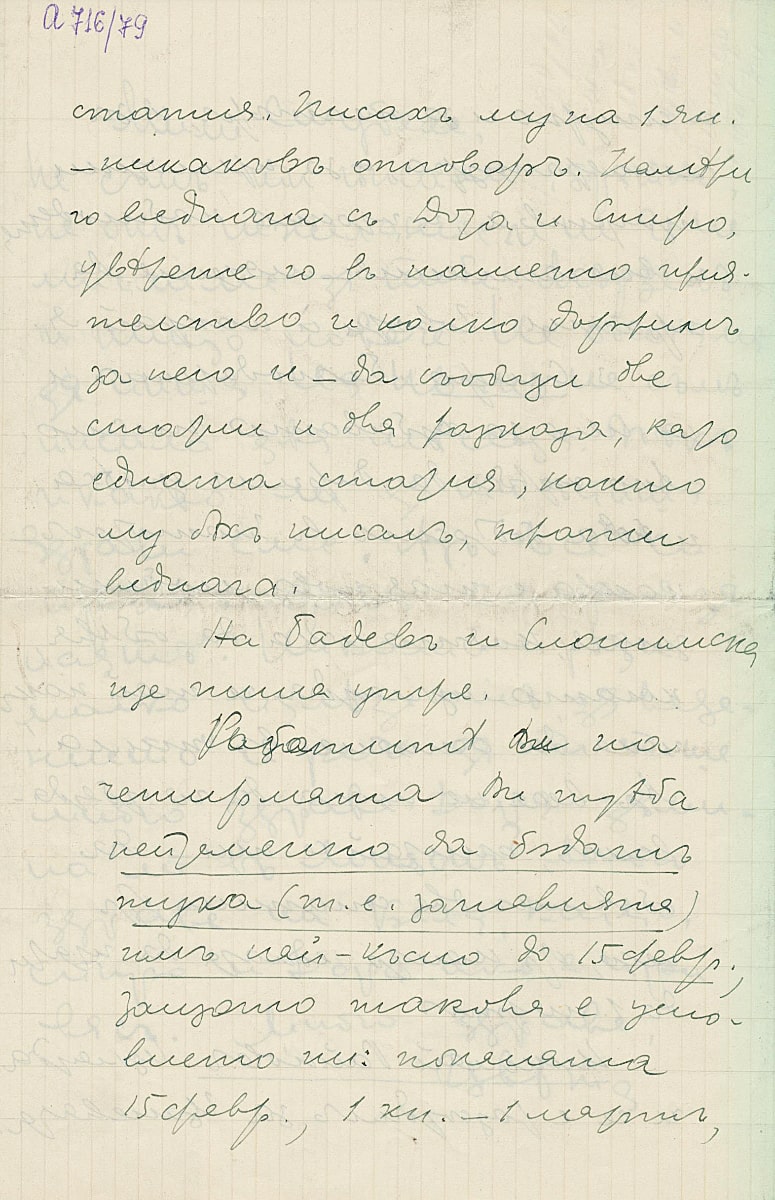 А 716/79
статия. Писахъ му на 1 ян.
– никакъвъ отговоръ. Намѣри
го веднага съ Доза и Спиро,
увѣрете го въ нашето прия-
телство и колко държимъ
за него и – да съобщи две
статии и два разказа, като
едната статия, както
му бѣхъ писалъ, прати
веднага.
На Бадевъ и Слонимска
ще пиша утре.
Работитѣ Ви на
четирмата Ви трѣба
непременно да бѫдатъ
тука (т. е. заглавията)
имъ най-късно до 15 февр.,
защото такова е усло-
вието ни: поканата
15 февр., 1 кн. – 1 мартъ,